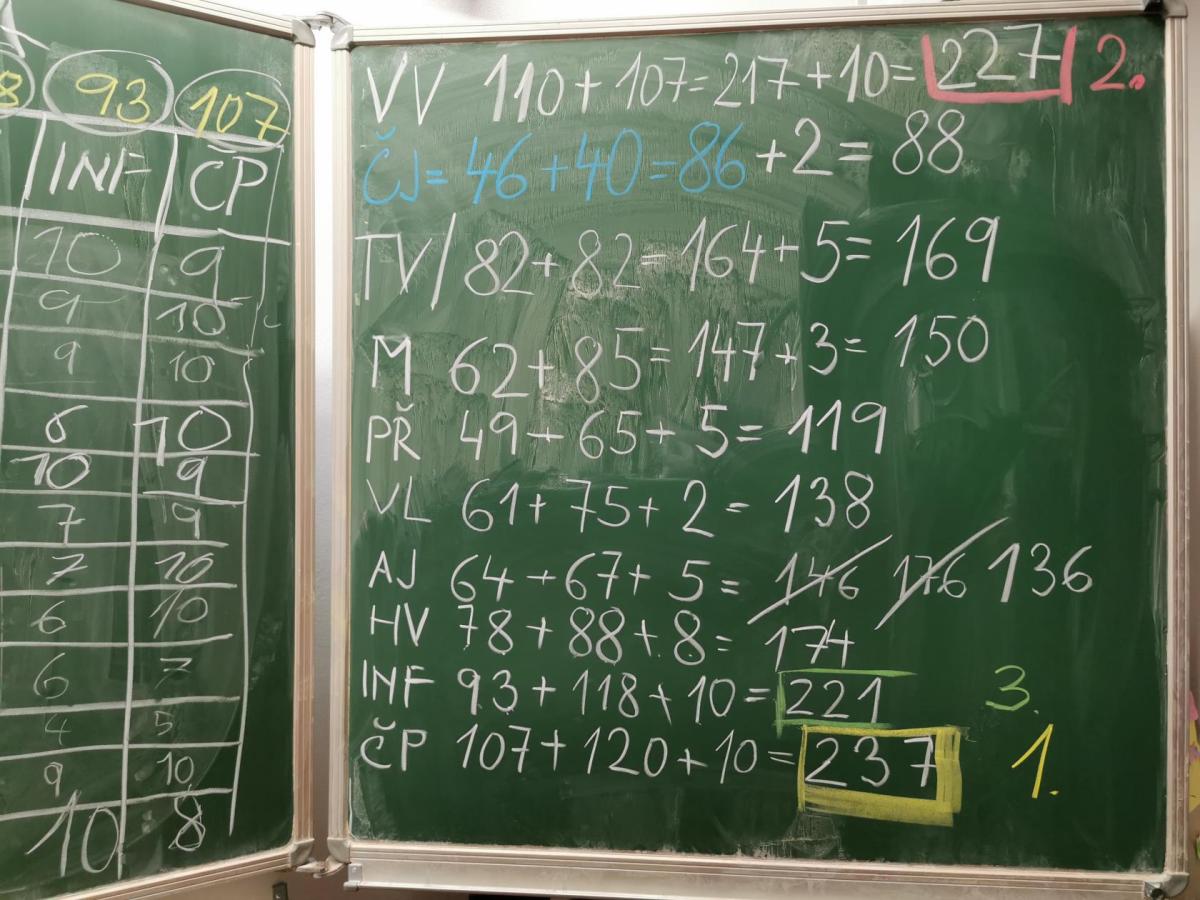 8 93 107
INF ČP
10 9
9 10
9 10
6 10
10 9
7 9
7 10
6 10
6 7
4 5
9 10
10 8
VV 110 + 107 = 217 + 10 = 227 2.
ČJ = 46 + 40 = 86 + 2 = 88
TV/ 82 + 82 = 164 + 5 = 169
M 62 + 85 = 147 + 3 = 150
PŘ 49 + 65 + 5 = 119
VL 61 + 75 + 2 = 138
AJ 64 + 67 + 5 = 146 176 136
HV 78 + 88 + 8 = 174
INF 93 + 118 + 10 = 221 3.
ČP 107 + 120 + 10 = 237 1.